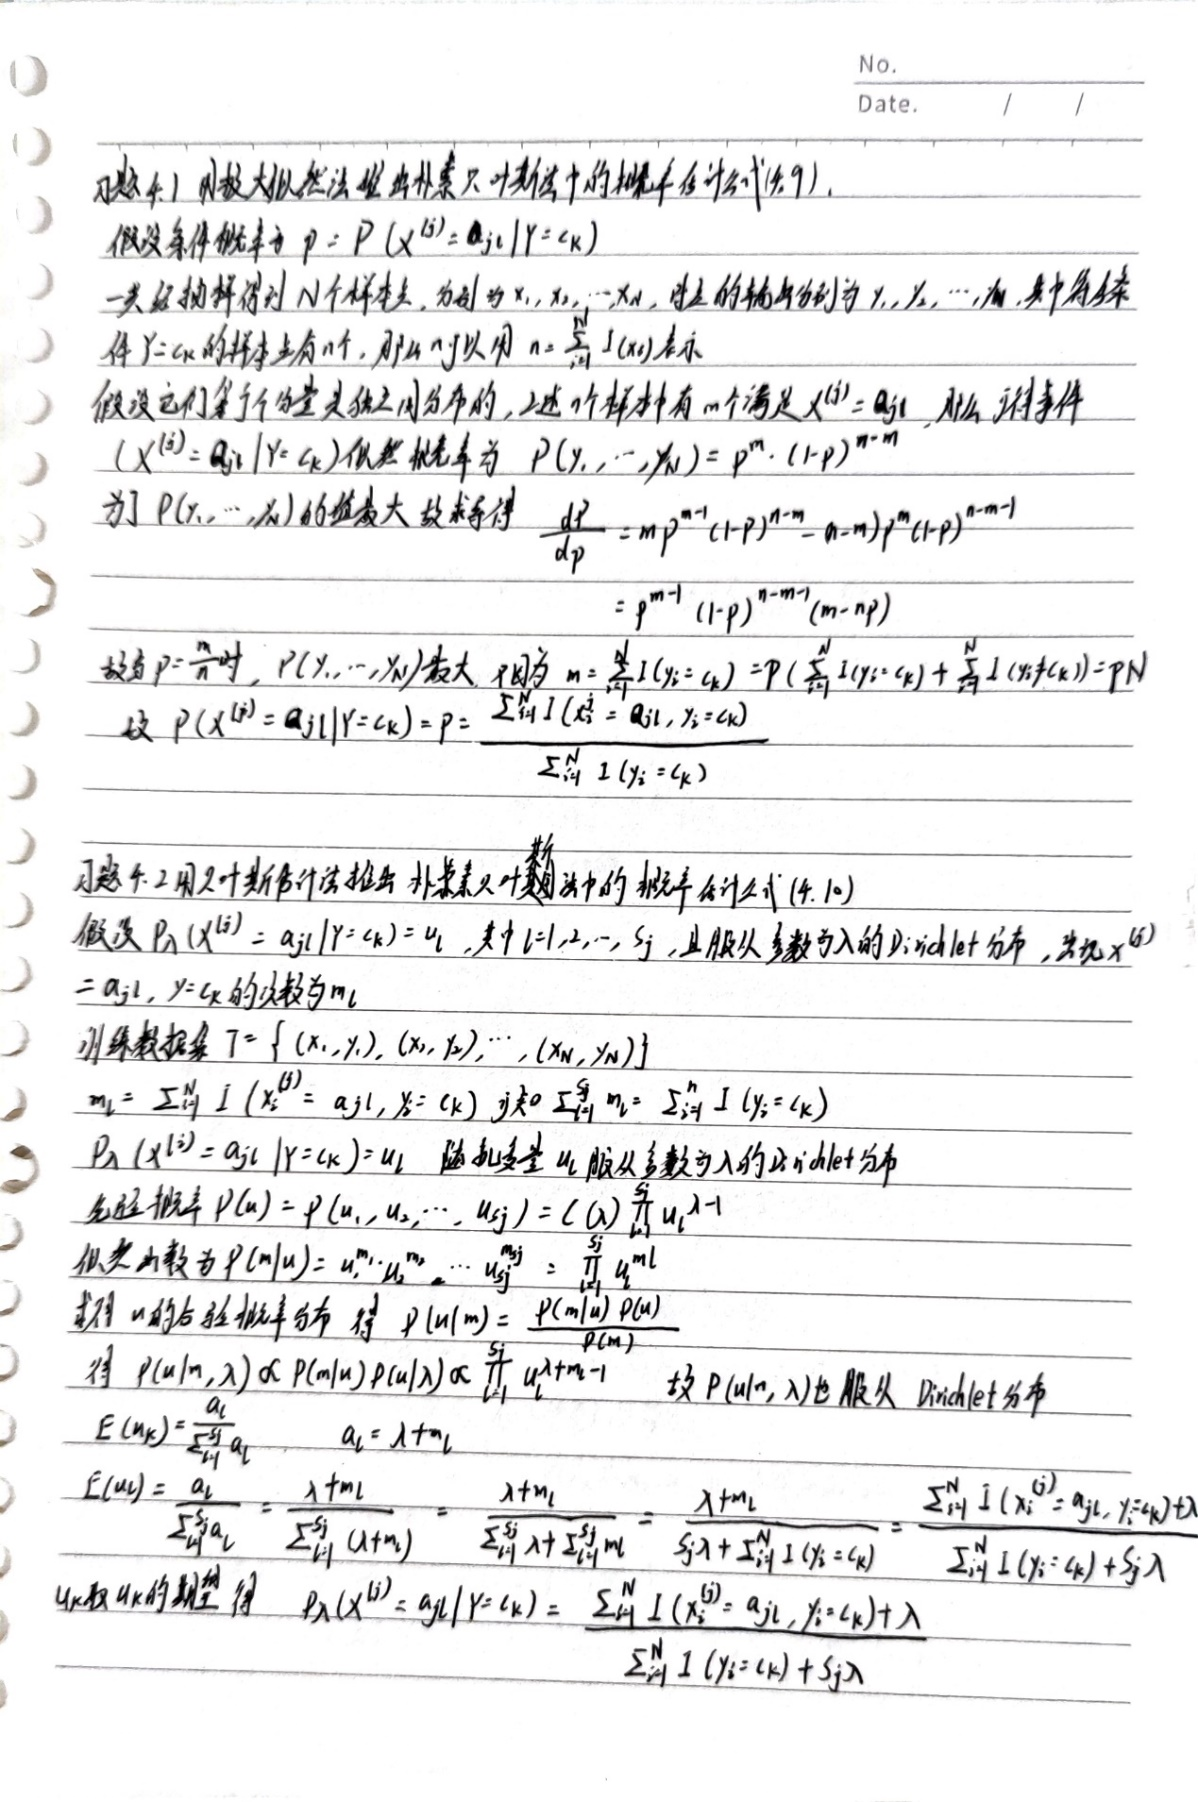 No.
Date. / /
习题4.1 用极大似然法推出朴素贝叶斯法中的概率估计公式(4.9).
假设条件概率为 p = P(X^(j) = a_jl | Y = c_k)
一共经抽样得到 N个样本点, 分别为 x_1, x_2, …, x_N, 对应的输出分别为 y_1, y_2, …, y_N, 其中符合条
件 Y = c_k 的样本点有n个, 那么 n可以用 n = Σ_{i=1}^N I(x_i) 表示
假设它们每个分量是独立同分布的, 上述n个样本中有 m个满足 X^(j) = a_jl, 那么可得事件
(X^(j) = a_jl | Y = c_k) 似然概率为 P(y_1, …, y_N) = p^m · (1-p)^{n-m}
为了 P(y_1, …, y_N) 的值最大 故求导得 dP/dp = mp^{m-1}(1-p)^{n-m} - (n-m)p^m(1-p)^{n-m-1}
= p^{m-1} (1-p)^{n-m-1} (m-np)
故当 p = m/n 时, P(y_1, …, y_N) 最大, 又因为 m = Σ_{i=1}^N I(y_i = c_k) = p(Σ_{i=1}^N I(y_i = c_k) + Σ_{i=1}^N I(y_i ≠ c_k)) = pN
故 P(X^(j) = a_jl | Y = c_k) = p = Σ_{i=1}^N I(x_i^j = a_jl, y_i = c_k) / Σ_{i=1}^N I(y_i = c_k)
习题 4.2 用贝叶斯估计法推出 朴素贝叶斯法中的 概率估计公式 (4.10)
假设 P_λ(X^(j) = a_jl | Y = c_k) = u_l, 其中 l=1,2,…, S_j, 且服从参数为λ的Dirichlet 分布, 出现 x^(j)
= a_jl, y = c_k 的次数为 m_l
训练数据集 T = { (x_1, y_1), (x_2, y_2), …, (x_N, y_N)}
m_l = Σ_{i=1}^N I (x_i^(j) = a_jl, y_i = c_k) 可知 Σ_{l=1}^{S_j} m_l = Σ_{i=1}^n I (y_i = c_k)
P_λ (X^(j) = a_jl | Y = c_k) = u_l 随机变量 u_l 服从参数为λ的Dirichlet分布
先验概率 P(u) = P(u_1, u_2, …, u_{S_j}) = C(λ) Π_{l=1}^{S_j} u_l^{λ-1}
似然函数为 P(m|u) = u_1^{m_1} · u_2^{m_2} · … u_{S_j}^{m_{S_j}} = Π_{l=1}^{S_j} u_l^{m_l}
求得 u的后验概率分布 得 P(u|m) = P(m|u) P(u) / P(m)
得 P(u|m, λ) ∝ P(m|u) P(u|λ) ∝ Π_{l=1}^{S_j} u_l^{λ+m_l-1} 故 P(u|m, λ) 也服从 Dirichlet 分布
E(u_k) = a_l / Σ_{l=1}^{S_j} a_l a_l = λ + m_l
E(u_l) = a_l / Σ_{l=1}^{S_j} a_l = (λ+m_l) / Σ_{l=1}^{S_j} (λ+m_l) = (λ+m_l) / (Σ_{l=1}^{S_j} λ + Σ_{l=1}^{S_j} m_l) = (λ+m_l) / (S_jλ + Σ_{i=1}^N I(y_i = c_k)) = (Σ_{i=1}^N I(x_i^(j) = a_jl, y_i = c_k) + λ) / (Σ_{i=1}^N I(y_i = c_k) + S_jλ)
u_k取 u_k的期望 得 P_λ(X^(j) = a_jl | Y = c_k) = (Σ_{i=1}^N I (x_i^(j) = a_jl, y_i = c_k) + λ) / (Σ_{i=1}^N I (y_i = c_k) + S_jλ)